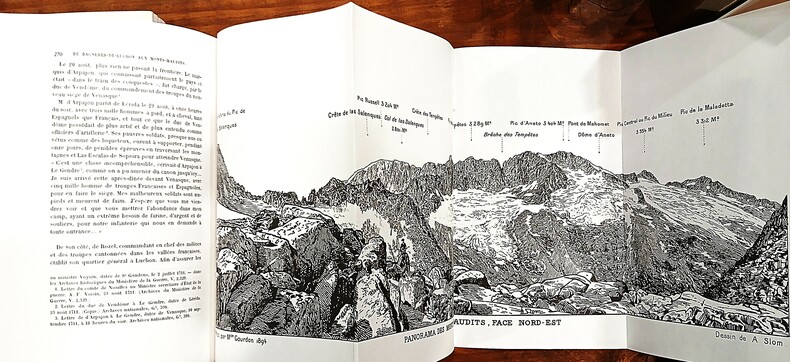 270 DE BAGNÈRES-DE-LUCHON AUX MONTS-MAUDITS.
Le 20 août, plus rien ne passait la frontière. Le mar-
quis d'Arpajon, qui connaissait parfaitement le pays et
était « dans le train des conquestes », fut chargé, par le
duc de Vendôme, du commandement des troupes du nou-
veau siège de Venasque¹.
M d'Arpajon partit de Lérida le 29 août, à onze heures
du soir, avec trois mille hommes à pied, et à cheval, tant
Espagnols que Français, et tout ce que le duc de Ven-
dôme possédait de plus actif et de plus entendu comme
officiers d'artillerie². Ses pauvres soldats, presque nus ou
vêtus comme des loqueteux, eurent à supporter, pendant
onze jours, de pénibles épreuves en traversant les mon-
tagnes et Las Escalas de Sopeira pour atteindre Venasque.
« C'est une chose incompréhensible, écrivait d'Arpajon à
Le Gendre³, comme on a pu amener du canon jusqu'icy...
Je suis arrivé cette après-dînée devant Venasque, avec
cinq mille homme de troupes Françaises et Espagnoles,
pour en faire le siège. Mes malheureux soldats sont nu-
pieds et meurent de faim. J'espère que vous me vien-
drez voir et que vous mettrez l'abondance dans mon
camp, ayant un extrême besoin de farine, d'argent et de
souliers, pour notre infanterie qui nous en demande à
toute outrance... »
De son côté, de Rozel, commandant en chef des milices
et des troupes cantonnées dans les vallées françaises,
établit son quartier général à Luchon. Afin d'assurer les
au ministre Voysin, datée de Sᵗ Gaudens, le 2 juillet 1711. —
les Archives historiques du Ministère de la Guerre, V. 2.329.
1 Lettre du comte de Noailles au Ministre secrétaire d'État de la
guerre, 23 août 1711. (Archives du Ministère de la
Guerre, V. 2.329.
2. Lettre du duc de Vendôme à Le Gendre, datée de Lérida
23 août 1711. (Copie.) Archives nationales, G⁷, 209.
3. Lettre de d'Arpajon à Le Gendre, datée de Venasque, 10 sep-
tembre 1711, à 10 heures du soir. Archives nationales, G⁷, 209.
Pic de
Salenques
Crête des Salenques
Pic Russell 3 204 Mˢ
Col des Salenques
2 810 Mˢ
Crête des Tempêtes
Tempêtes 3 289 Mˢ
Brèche des Tempêtes
Pic d'Aneto 3 404 Mˢ
Pont de Mahomet
Dôme d'Aneto
Pic Central ou Pic du Milieu
3 354 Mˢ
Pic de la Maladetta
3 312 Mˢ
Mᶜᵉ Gourdon 1894
PANORAMA DES MONTS-MAUDITS, FACE NORD-EST
Dessin de A Slom